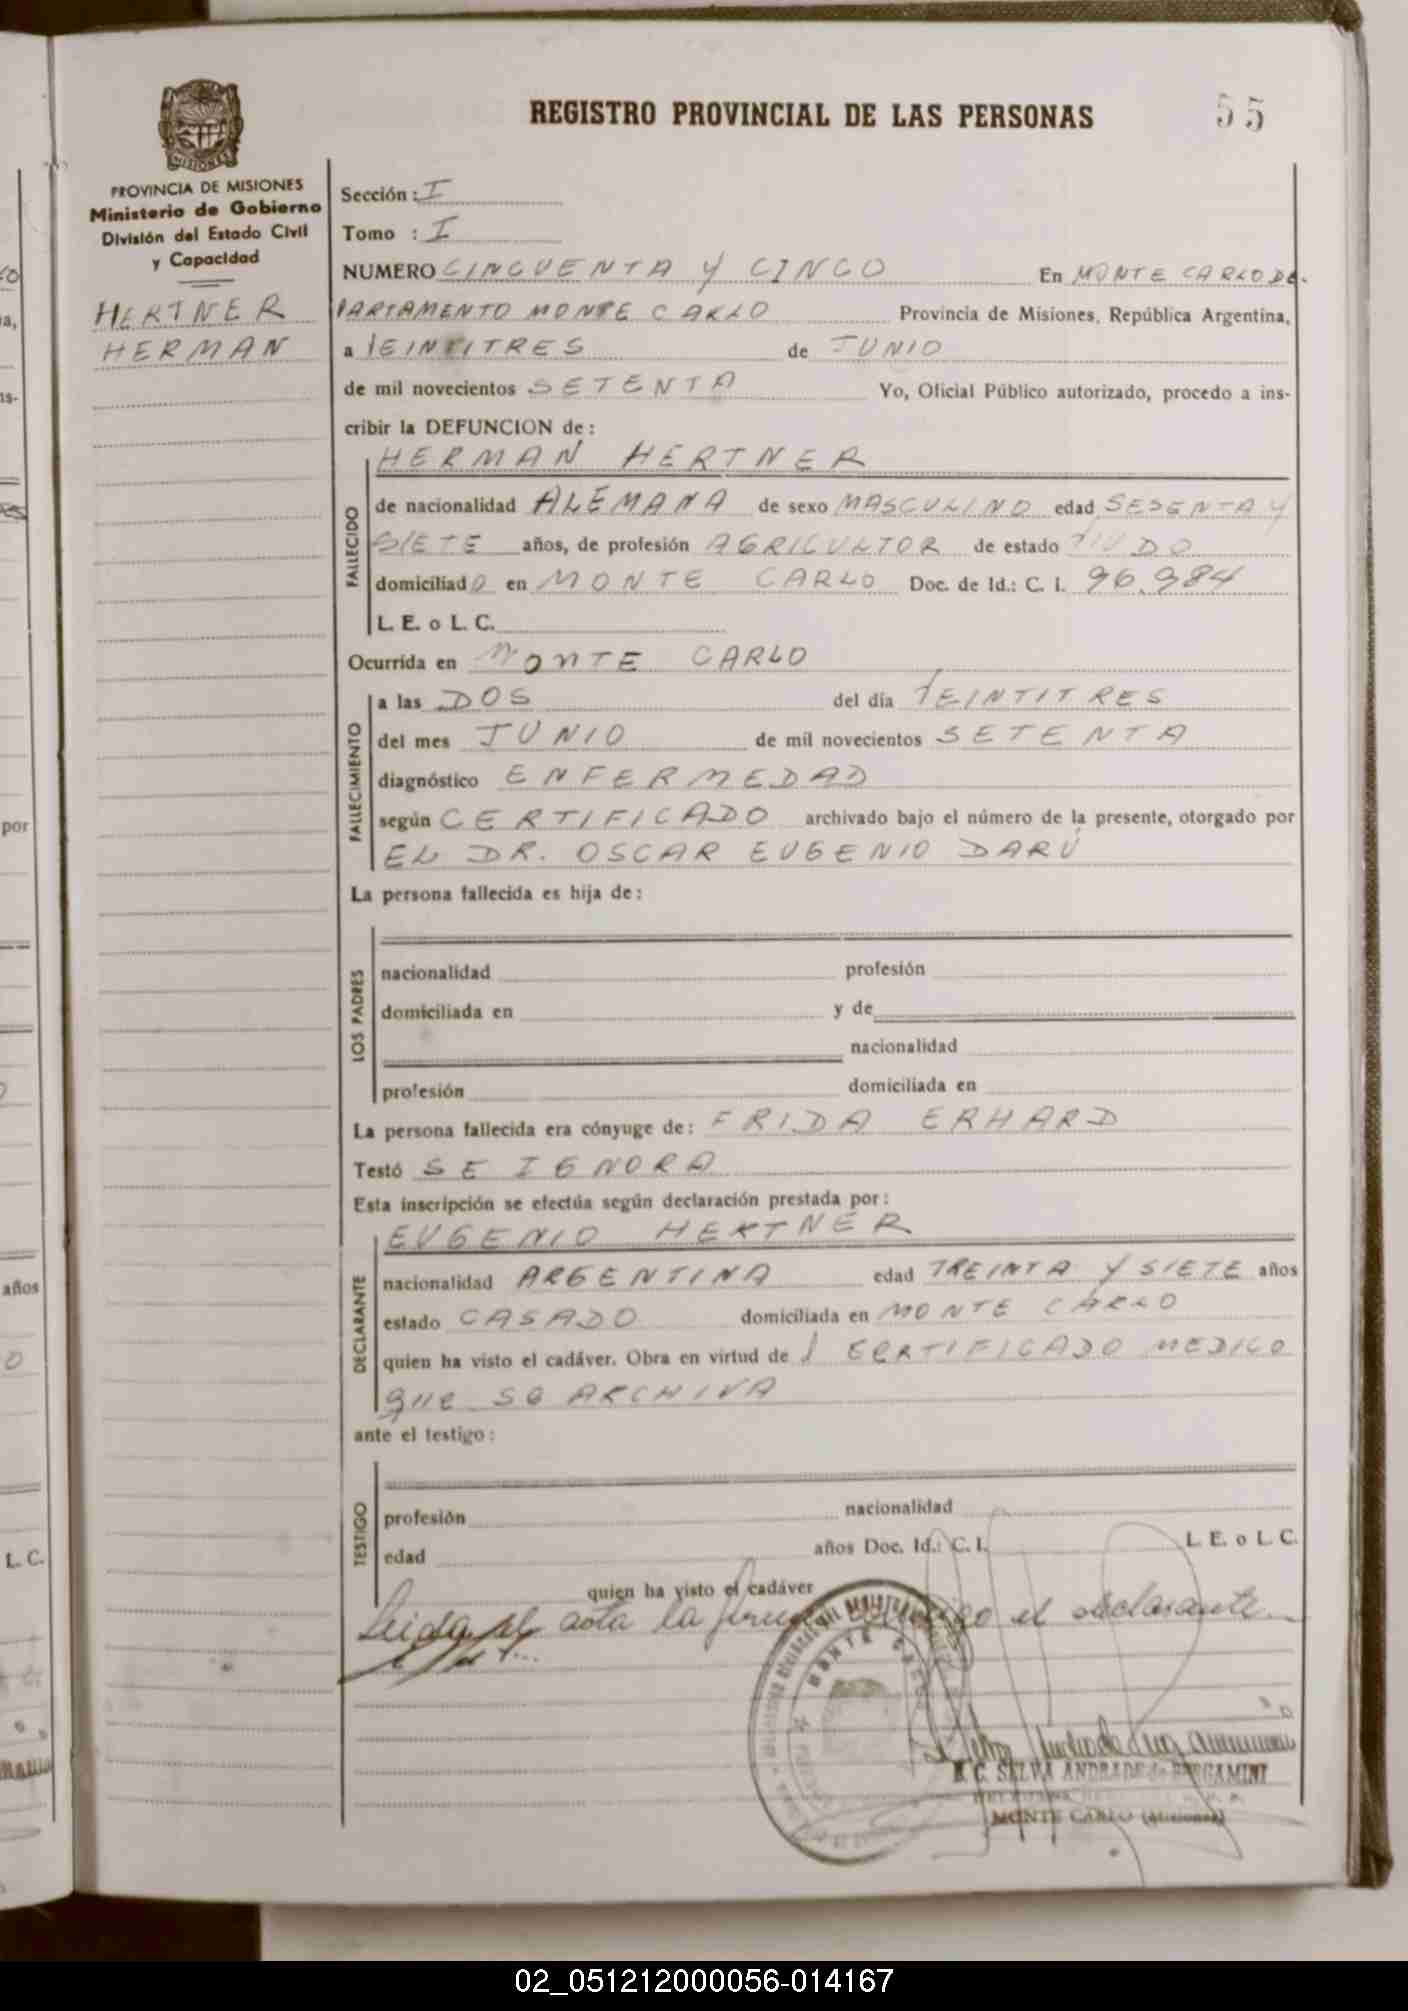 REGISTRO PROVINCIAL DE LAS PERSONAS
55
MISIONES
PROVINCIA DE MISIONES
Ministerio de Gobierno
División del Estado Civil
y Capacidad
HERTNER
HERMAN
Sección : I
Tomo : I
NUMERO CINCUENTA Y CINCO En MONTE CARLO DE-
PARTAMENTO MONTE CARLO Provincia de Misiones, República Argentina,
a VEINTITRES de JUNIO
de mil novecientos SETENTA Yo, Oficial Público autorizado, procedo a ins-
cribir la DEFUNCION de :
HERMAN HERTNER
FALLECIDO
de nacionalidad ALEMANA de sexo MASCULINO edad SESENTA Y
SIETE años, de profesión AGRICULTOR de estado VIUDO
domiciliado en MONTE CARLO Doc. de Id.: C. I. 96.984
L. E. o L. C.
Ocurrida en MONTE CARLO
FALLECIMIENTO
a las DOS del día VEINTITRES
del mes JUNIO de mil novecientos SETENTA
diagnóstico ENFERMEDAD
según CERTIFICADO archivado bajo el número de la presente, otorgado por
EL DR. OSCAR EUGENIO DARÚ
La persona fallecida es hija de :
LOS PADRES
nacionalidad profesión
domiciliada en y de
nacionalidad
profesión domiciliada en
La persona fallecida era cónyuge de : FRIDA ERHARD
Testó SE IGNORA
Esta inscripción se efectúa según declaración prestada por :
EUGENIO HERTNER
DECLARANTE
nacionalidad ARGENTINA edad TREINTA Y SIETE años
estado CASADO domiciliada en MONTE CARLO
quien ha visto el cadáver. Obra en virtud de CERTIFICADO MEDICO
QUE SE ARCHIVA
ante el testigo :
TESTIGO
profesión nacionalidad
edad años Doc. Id.: C. I. L. E. o L. C.
quien ha visto el cadáver
Leida el acta la conmigo el declarante
MONTE CARLO
SELVA ANDRADE de BERGAMINI
MONTE CARLO (Misiones)
por
años
L. C.
02_051212000056-014167